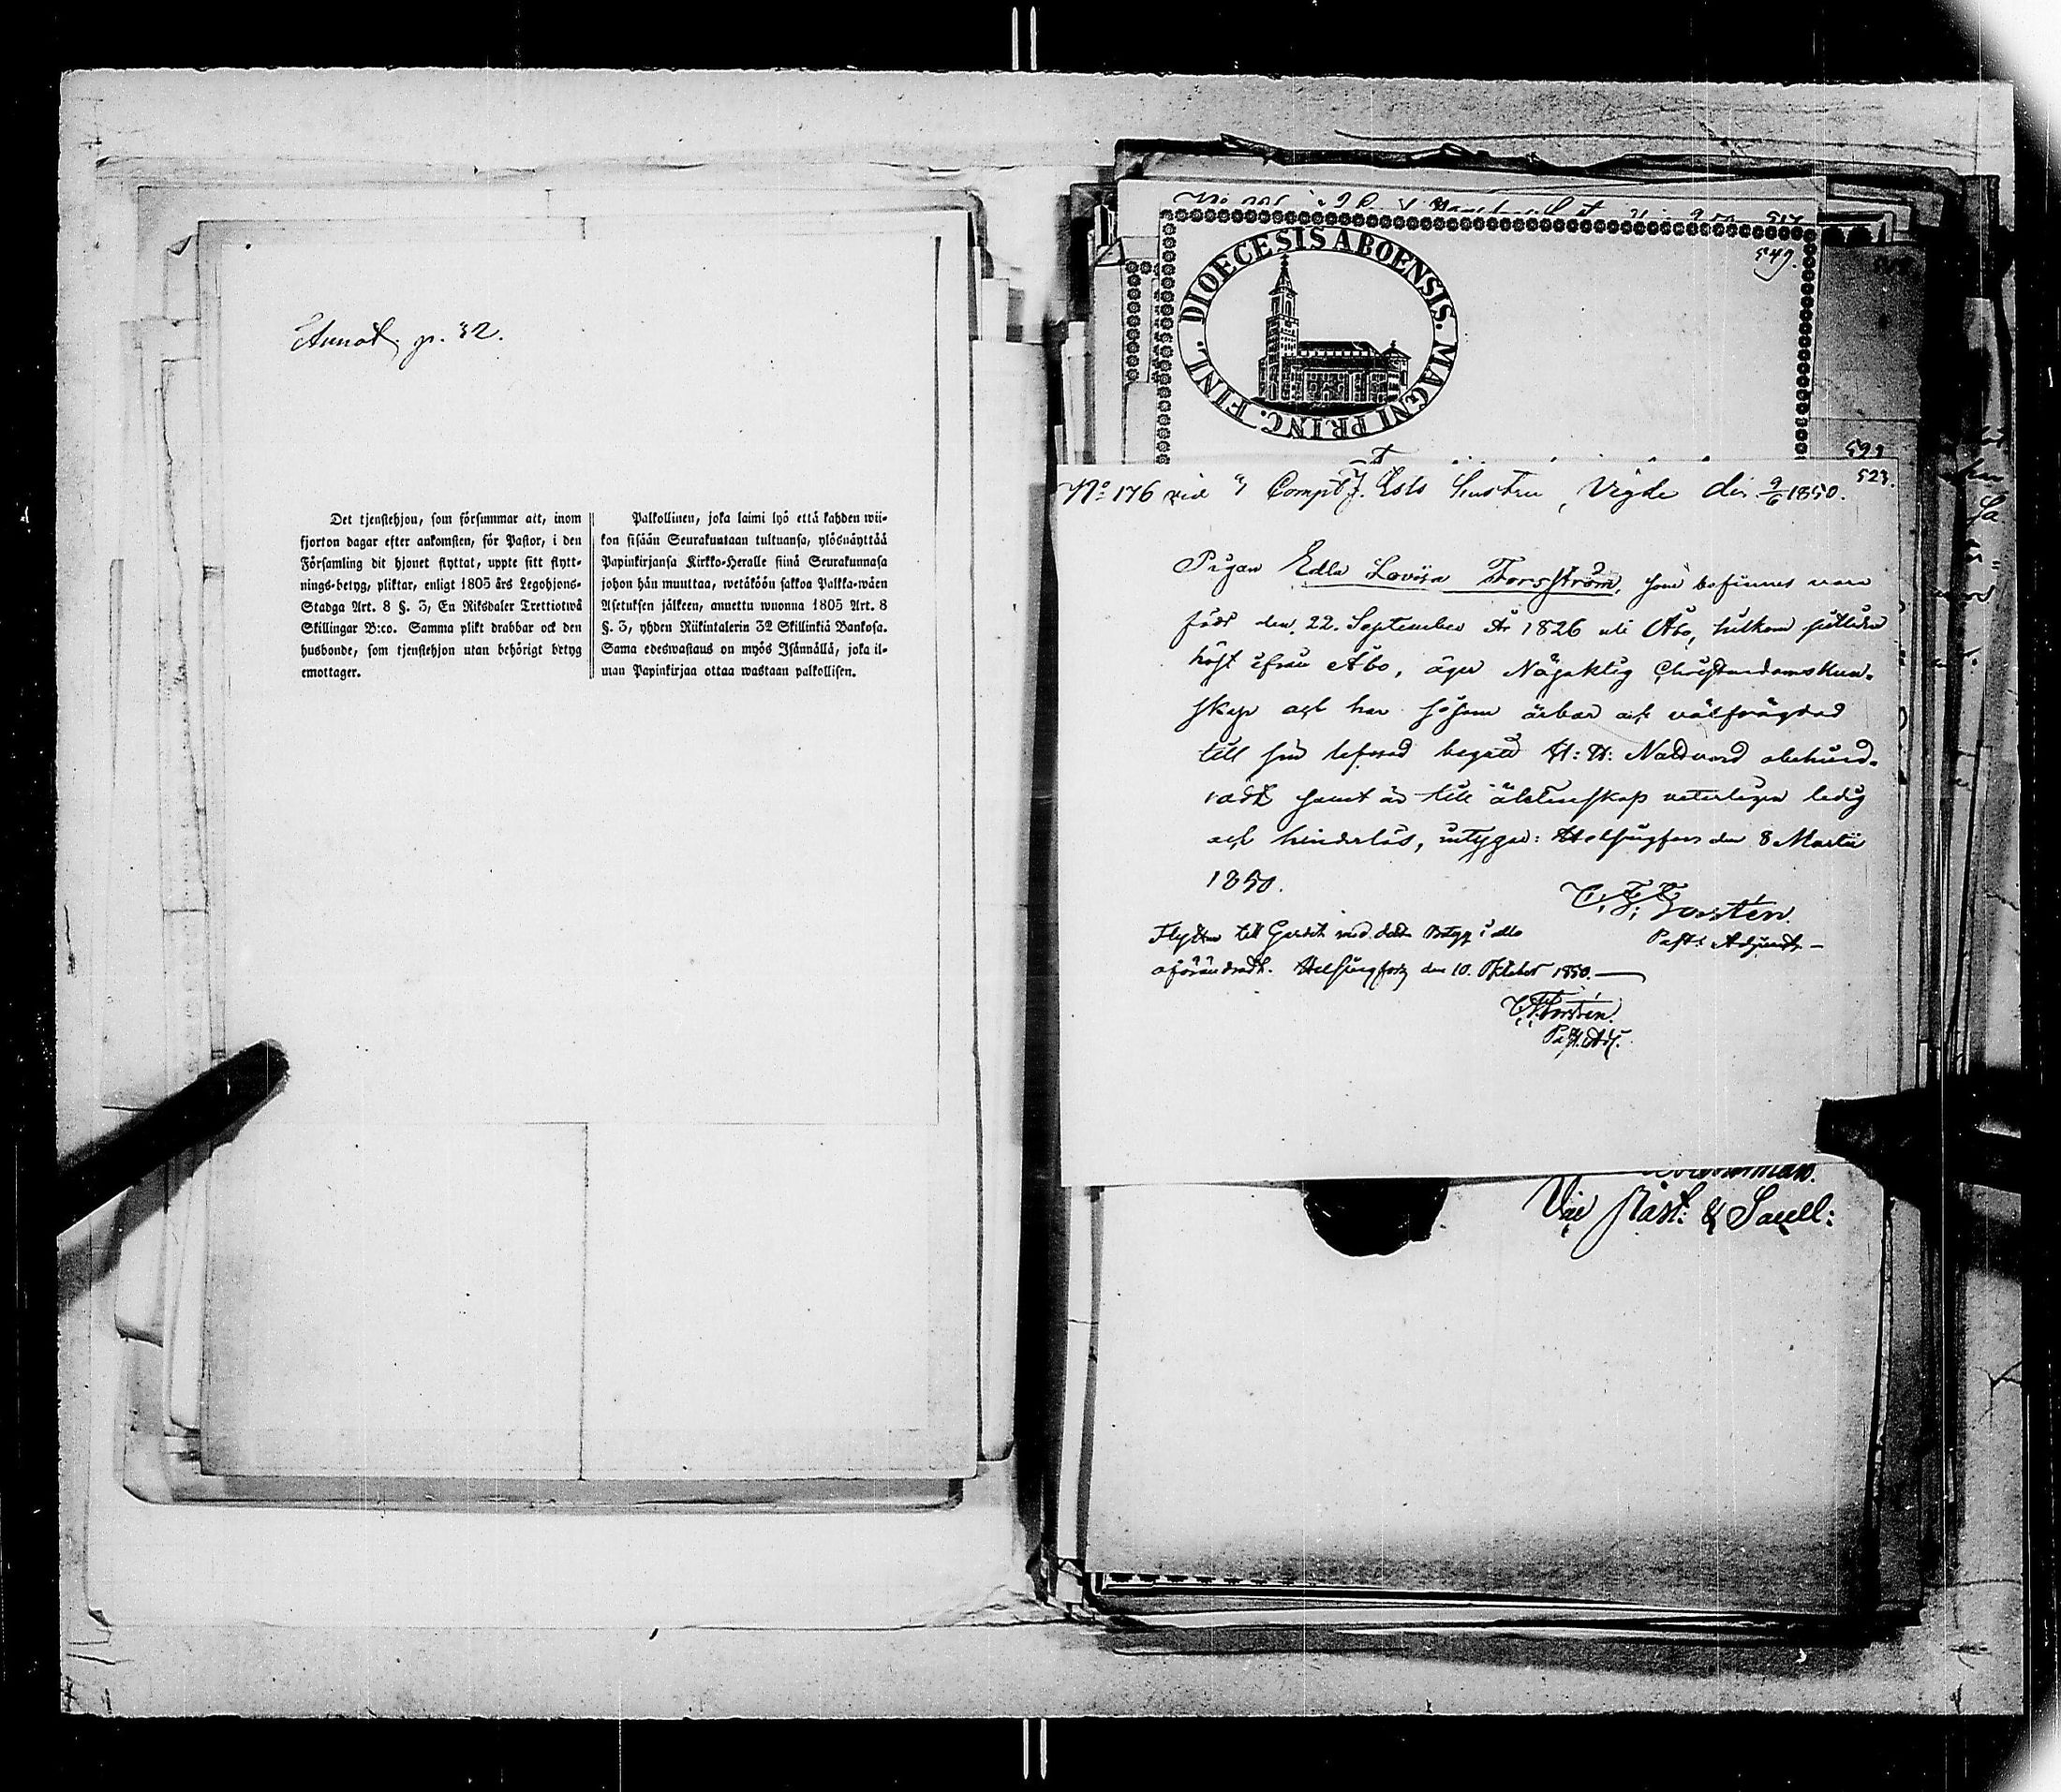 Annot. p. 32.
Det tjenstehjon, som försummar att, inom
fjorton dagar efter ankomsten, för Pastor, i den
Församling dit hjonet flyttat, uppte sitt flytt-
nings-betyg, pliktar, enligt 1805 års Legohjons-
Stadga Art. 8 §. 3, En Riksdaler Trettiotwå
Skillingar B:co. Samma plikt drabbar ock den
husbonde, som tjenstehjon utan behörigt betyg
emottager.
Palkollinen, joka laimi lyö että kahden wii-
kon sisään Seurakuntaan tultuansa, ylösnäyttää
Papinkirjansa Kirkko-Heralle siinä Seurakunnasa
johon hän muuttaa, wetäköön sakkoa Palkka-wäen
Asetuksen jälkeen, annettu wuonna 1805 Art. 8
§. 3, yhden Riikintalerin 32 Skillinkiä Bankosa.
Sama edeswastaus on myös Isännällä, joka il-
man Papinkirjaa ottaa wastaan palkollisen.
547.
DIOECESIS ABOENSIS. MAGNI PRINC. FINL.
599
523.
No 176 vid Comp. hustru, Vigde d. 9/6 1850.
Pigan Edla Lovisa Forsström, som befinnes vara
född den 22. September År 1826 uti Åbo, hitkom
höst ifrån Åbo, äger Nöjaktig Christendomskun-
skap och har såsom ärbar och välfrägdad
till sin lefnad begått H: H: Nattvard obehind-
radt samt är till äktenskap veterligen ledig
och hinderlös, intygar: Helsingfors den 8 Martii
1850.
C. F. Forstén.
Past: Adjunct.
Flyttar till Gardet med detta Betyg i allo
oförändradt. Helsingfors den 10. Oktober 1850.
C. F. Forstén.
Past. Adj.
Vice Past: & Sacell: